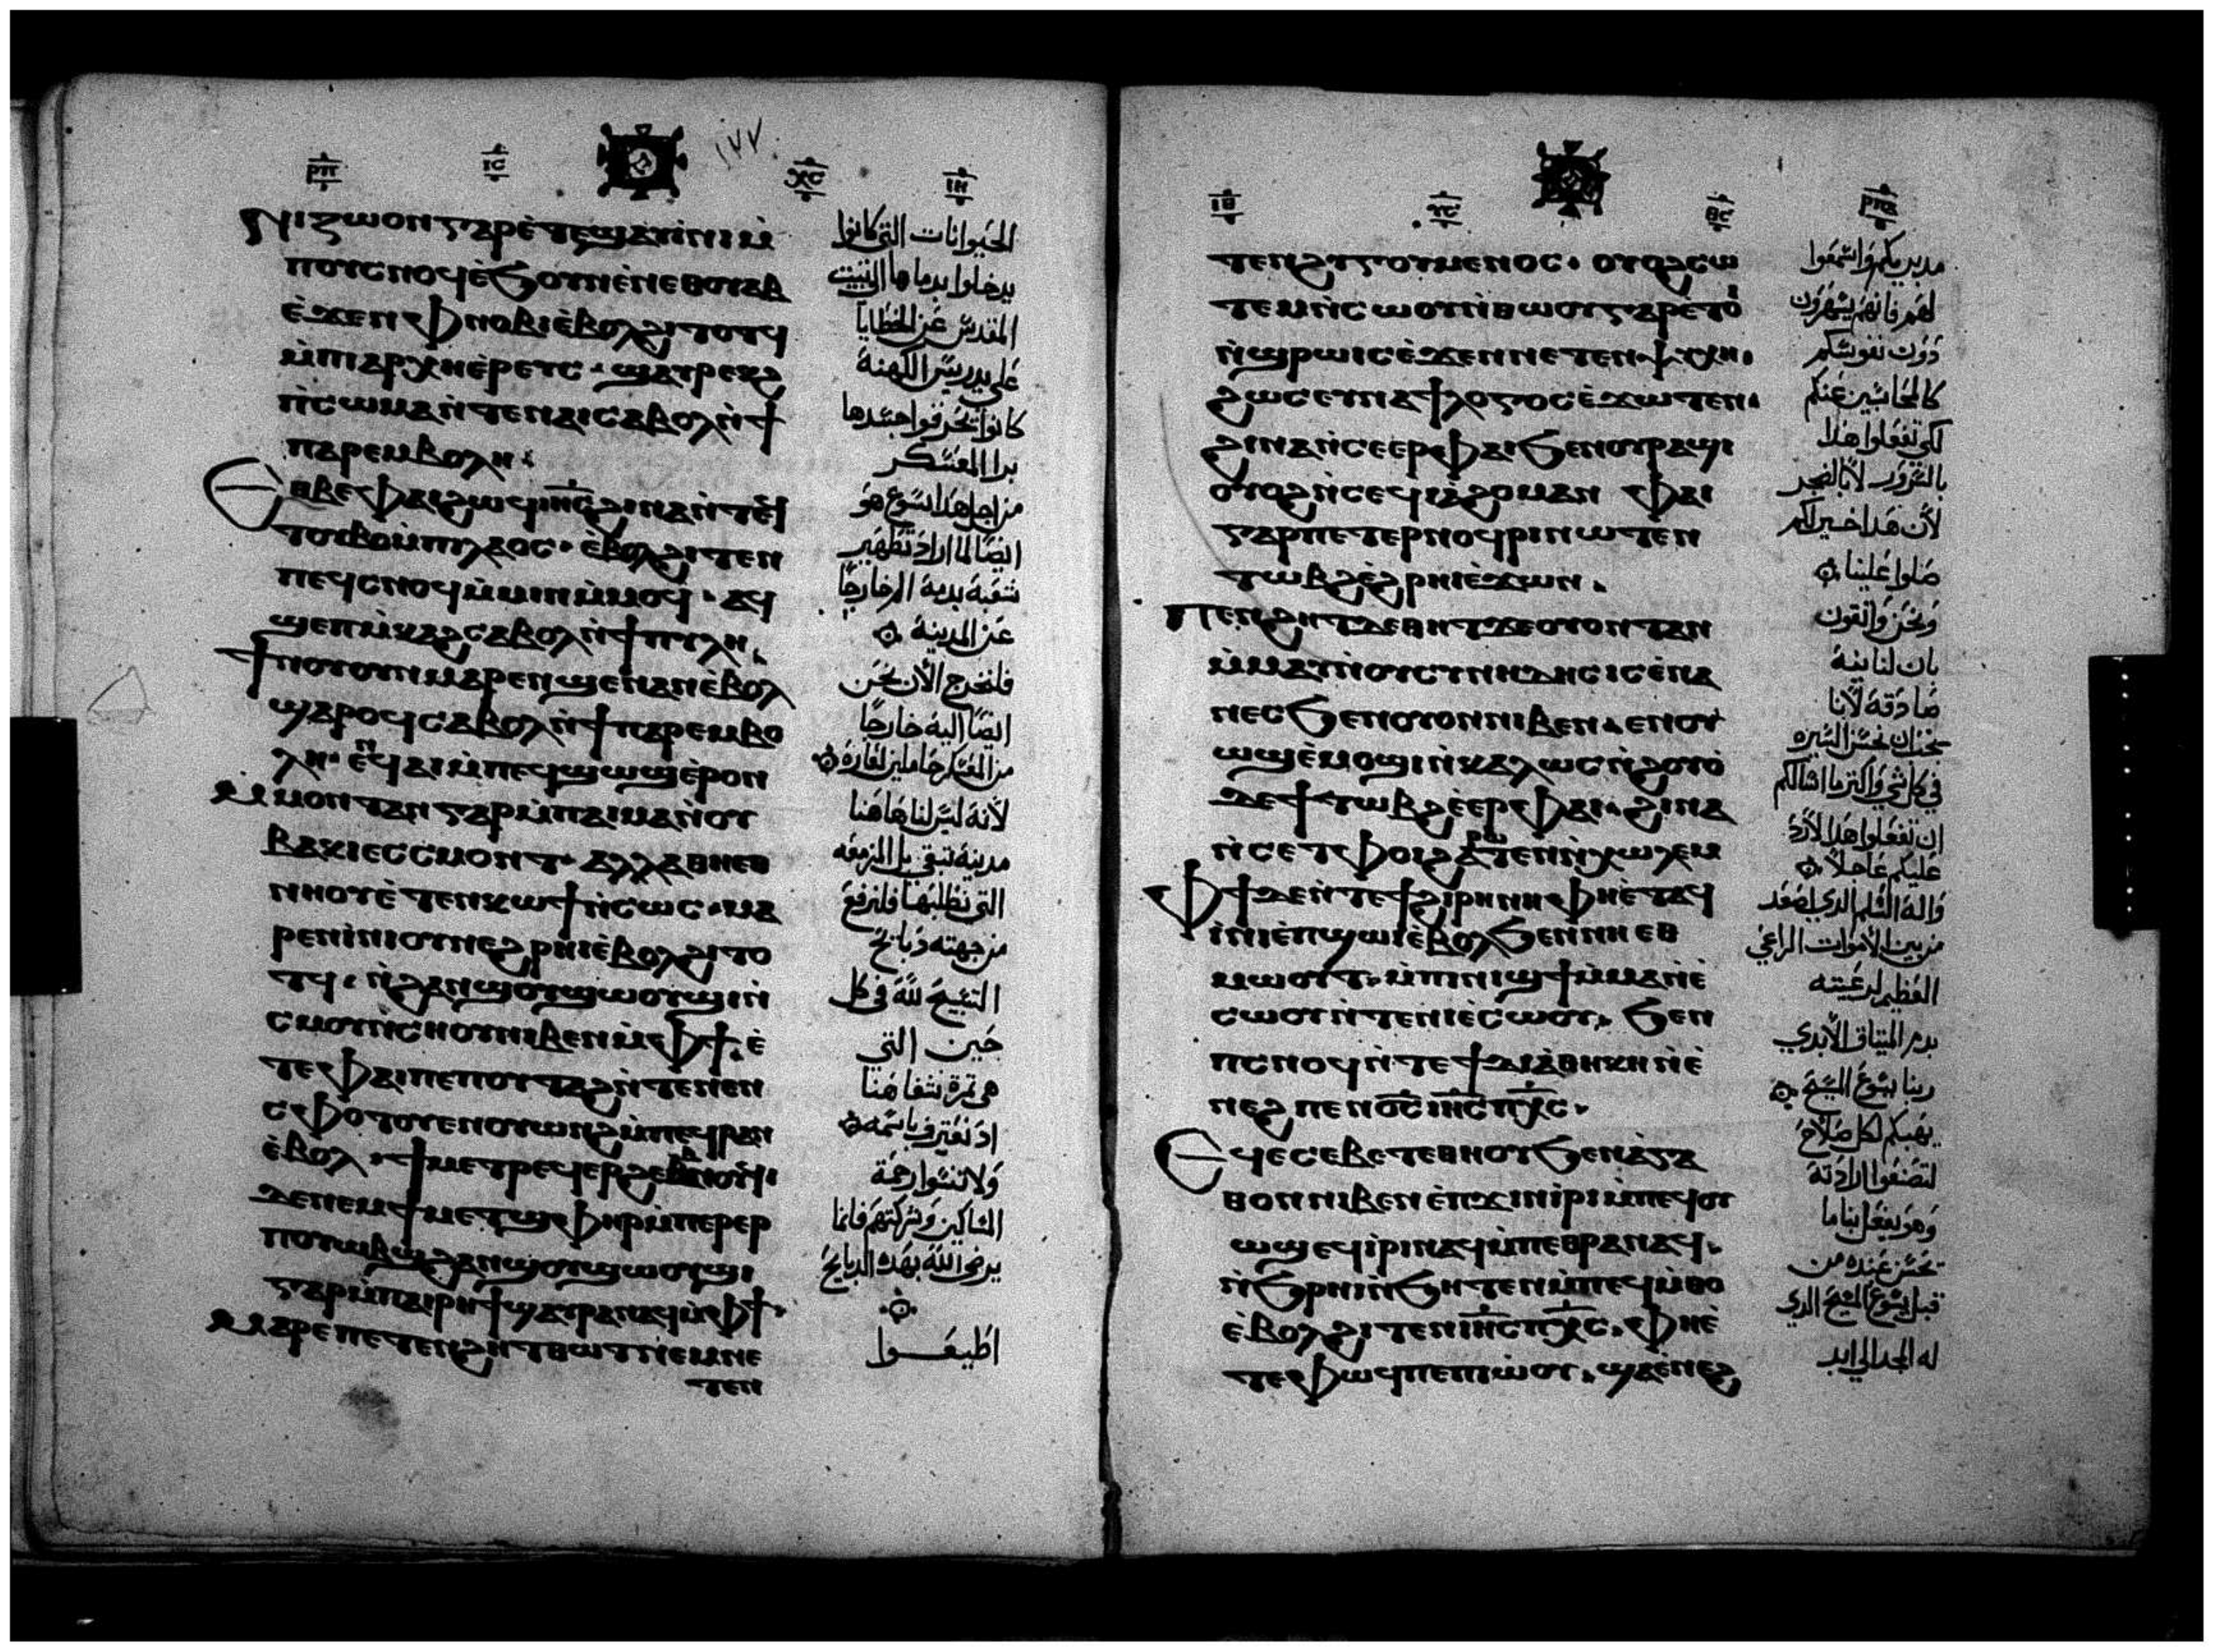 ⲣⲡ ⲓⲥ ⲭⲥ ⲓⲏ
١٧٧
ⲛⲓⲍⲱⲟⲛ ⲅⲁⲣ ⲉ̀ⲧⲉϣⲁⲩⲓ̀ⲛⲓ ⲙ̀
ⲡⲟⲩⲥⲛⲟϥ ⲉ̀ϧⲟⲩⲛ ⲉ̀ⲛⲉⲑⲟⲩⲁⲃ
ⲉ̀ϫⲉⲛ ⲫⲛⲟⲃⲓ ⲉ̀ⲃⲟⲗϩⲓⲧⲟⲧϥ
ⲙ̀ⲡⲓⲁⲣⲭⲏⲉ̀ⲣⲉⲩⲥ · ϣⲁⲩⲣⲉⲕϩ
ⲛⲓⲥⲱⲙⲁ ⲛ̀ⲧⲉⲛⲁⲓ ⲥⲁⲃⲟⲗ ⲛ̀ϯ
ⲡⲁⲣⲉⲙⲃⲟⲗⲏ ⁖
Ⲉⲑⲃⲉⲫⲁⲓ ϩⲱϥ ⲓⲏⲥ ϩⲓⲛⲁ ⲛ̀ⲧⲉϥ
ⲧⲟⲩⲃⲟ ⲙ̀ⲡⲓⲗⲁⲟⲥ · ⲉ̀ⲃⲟⲗϩⲓⲧⲉⲛ
ⲡⲉϥⲥⲛⲟϥ ⲙ̀ⲙⲓⲛ ⲙ̀ⲙⲟϥ · ⲁϥ
ϣⲉⲡⲙ̀ⲕⲁϩ ⲥⲁⲃⲟⲗ ⲛ̀ϯⲡⲩⲗⲏ
Ϯⲛⲟⲩ ⲟⲩⲛ ⲙⲁⲣⲉⲛϣⲉⲛⲁⲛ ⲉ̀ⲃⲟⲗ
ϣⲁⲣⲟϥ ⲥⲁⲃⲟⲗ ⲛ̀ϯⲡⲁⲣⲉⲙⲃⲟ
ⲗⲏ · ⲉⲛϥⲁⲓ ⲙ̀ⲡⲉϥϣⲱϣ ⲉ̀ⲣⲟⲛ
Ⲙⲙⲟⲛⲧⲁⲛ ⲅⲁⲣ ⲙ̀ⲡⲁⲓⲙⲁ ⲛ̀ⲟⲩ
ⲃⲁⲕⲓ ⲉⲥⲥⲙⲟⲛⲧ · ⲁⲗⲗⲁ ⲑⲏⲉⲑ
ⲛⲏⲟⲩ ⲉ̀ⲧⲉⲛⲕⲱϯ ⲛ̀ⲥⲱⲥ · ⲙⲁ
ⲣⲉⲛⲓ̀ⲛⲓ ⲟⲩⲛ ⲉϩⲣⲏⲓ ⲉ̀ⲃⲟⲗϩⲓⲧⲟ
ⲧϥ · ⲛ̀ϩⲁⲛϣⲟⲩϣⲱⲟⲩϣⲓ ⲛ̀
ⲥⲙⲟⲩ ⲛ̀ⲥⲛⲟⲩ ⲛⲓⲃⲉⲛ ⲙ̀ⲫϯ ⲉ̀
ⲧⲉⲫⲁⲓ ⲡⲉ ⲡⲟⲩⲧⲁϩ ⲛ̀ⲧⲉⲛⲉⲛ
ⲥⲫⲟⲧⲟⲩ ⲉⲛⲟⲩⲱⲛϩ ⲙ̀ⲡⲉϥⲣⲁⲛ
ⲉ̀ⲃⲟⲗ · ϯⲙⲉⲧⲣⲉϥⲉⲣⲡⲉⲑⲛⲁⲛⲉϥ
ⲇⲉ ⲛⲉⲙ ϯⲙⲉⲧϣⲫⲏⲣ ⲙ̀ⲡⲉⲣⲉⲣ
ⲡⲟⲩⲱⲃϣ ϩⲁⲛϣⲟⲩϣⲱⲟⲩϣⲓ
ⲅⲁⲣ ⲙ̀ⲡⲁⲓⲣⲏϯ ϣⲁⲩⲣⲁⲛⲁϥ ⲙ̀ⲫϯ
Ⲙⲁⲣⲉⲡⲉⲧⲉⲛϩⲏⲧ ⲑⲱⲧ ⲛⲉⲙ ⲛⲉ
ⲧⲉⲛ
الحيوانات التي كانوا
يدخلوا بدمها الى البيت
المقدس عن الخطايا
على يد ريس الكهنة
كانوا تحرقوا اجسدها
برا المعسكر
من اجل هذا يسوع هو
ايضا لما اراد تطهير
شعبه بدمه الم خارجا
عن المدينة
فلنخرج الان نحن
ايضا اليه خارجا
من العسكر حاملين لعاره
لانه ليس لنا هاهنا
مدينة تبقى بل المزمعه
التي نطلبها فلنرفع
من جهته دبايح
التسبيح لله في كل
حين التي
هي تمرة شفاهنا
اد نعترف باسمه
ولا تنسوا رحمة
المساكين وشركتهم فانما
يرضى الله بهده الدبايح
اطيعوا
ⲓⲏ ⲩⲥ ⲑⲥ
ⲧⲉⲛϩⲩⲅⲟⲩⲙⲉⲛⲟⲥ · ⲟⲩⲟϩ ⲥⲱ
ⲧⲉⲙ ⲛ̀ⲥⲱⲟⲩ ⲛ̀ⲑⲱⲟⲩ ⲅⲁⲣ ⲉⲧⲟⲓ
ⲛ̀ϣⲣⲱⲓⲥ ⲉ̀ϫⲉⲛ ⲛⲉⲧⲉⲛⲯⲩⲭⲏ ·
ϩⲱⲥ ⲉⲩⲛⲁϯⲗⲟⲅⲟⲥ ⲉ̀ϫⲱⲧⲉⲛ ·
ϩⲓⲛⲁ ⲛ̀ⲥⲉⲉⲣⲫⲁⲓ ϧⲉⲛⲟⲩⲣⲁϣⲓ
ⲟⲩⲟϩ ⲛ̀ⲥⲉϥⲓⲁ̀ϩⲟⲙ ⲁⲛ ⲫⲁⲓ
ⲅⲁⲣ ⲡⲉⲧⲉⲣⲛⲟϥⲣⲓ ⲛⲱⲧⲉⲛ
ⲧⲱⲃϩ ⲉ̀ϩⲣⲏⲓ ⲉ̀ϫⲱⲛ ·
Ⲡⲉⲛϩⲏⲧ ⲇⲉ ⲑⲏⲧ ϫⲉ ⲟⲩⲟⲛⲧⲁⲛ
ⲙ̀ⲙⲁⲩ ⲛ̀ⲟⲩⲥⲩⲛⲏⲇⲏⲥⲓⲥ ⲉ̀ⲛⲁ
ⲛⲉⲥ ϧⲉⲛⲟⲩⲟⲛ ⲛⲓⲃⲉⲛ · ⲉⲛⲟⲩ
ⲱϣ ⲉ̀ⲙⲟϣⲓ ⲛ̀ⲕⲁⲗⲱⲥ ⲛ̀ϩⲟⲩⲟ̀
ⲇⲉ ϯⲧⲱⲃϩ ⲉ̀ⲉⲣⲫⲁⲓ · ϩⲓⲛⲁ
ⲛ̀ⲥⲉⲧⲫⲟⲓ ϩⲁⲣⲱⲧⲉⲛ ⲛ̀ⲭⲱⲗⲉⲙ
Ⲫϯ ⲇⲉ ⲛ̀ⲧⲉϯϩⲓⲣⲏⲛⲏ ⲫⲏⲉ̀ⲧⲁϥ
ⲓ̀ⲛⲓ ⲉ̀ⲡϣⲱⲓ ⲉ̀ⲃⲟⲗϧⲉⲛ ⲛⲏⲉⲑ
ⲙⲱⲟⲩⲧ · ⲙ̀ⲡⲓⲛⲓϣϯ ⲙ̀ⲙⲁⲛⲉ̀
ⲥⲱⲟⲩ ⲛ̀ⲧⲉⲛⲓⲉ̀ⲥⲱⲟⲩ · ϧⲉⲛ
ⲡⲥⲛⲟϥ ⲛ̀ⲧⲉϯⲇⲓⲁ̀ⲑⲏⲕⲏ ⲛ̀ⲉ̀
ⲛⲉϩ ⲡⲉⲛⲟⲥ ⲓⲏⲥ ⲡⲭⲥ ·
Ⲉϥⲉⲥⲉⲃⲧⲉⲑⲏⲛⲟⲩ ϧⲉⲛⲁ̀ⲅⲁ
ⲑⲟⲛ ⲛⲓⲃⲉⲛ ⲉ̀ⲡϫⲓⲛⲓ̀ⲣⲓ ⲙ̀ⲡⲉϥⲟⲩ
ⲱϣ ⲉϥⲓ̀ⲣⲓ ⲛⲁϥ ⲙ̀ⲡⲉⲑⲣⲁⲛⲁϥ ·
ⲛ̀ϧⲣⲏⲓ ⲛ̀ϧⲏⲧⲉⲛ ⲙ̀ⲡⲉϥⲙ̀ⲑⲟ
ⲉ̀ⲃⲟⲗ ϩⲓⲧⲉⲛ ⲓⲏⲥ ⲡⲭⲥ · ⲫⲏⲉ̀
ⲧⲉⲫⲱϥ ⲡⲉ ⲡⲓⲱ̀ⲟⲩ · ϣⲁⲉ̀ⲛⲉϩ
مدبريكم واسمعوا
لهم فانهم يسهرون
دون نفوسكم
كالمحاسبين عنكم
لكي تفعلوا هدا
بالسرور لا بالضجر
لان هدا خير لكم
صلوا علينا
ونحن واتقون
بان لنا نية
صادقة لانا
نحب ان نحسن السيره
في كل شي واكتر ما اسالكم
ان تفعلوا هدا لارد
عليكم عاجلا
واله السلم الدي اصعد
من بين الاموات الراعي
العظيم لرعيته
بدم الميتاق الابدي
ربنا يسوع المسيح
يهبكم لكل صلاح
لتصنعوا ارادته
وهو يفعل بنا ما
تحسن عنده من
قبل يسوع المسيح الدي
له المجد الى ابد